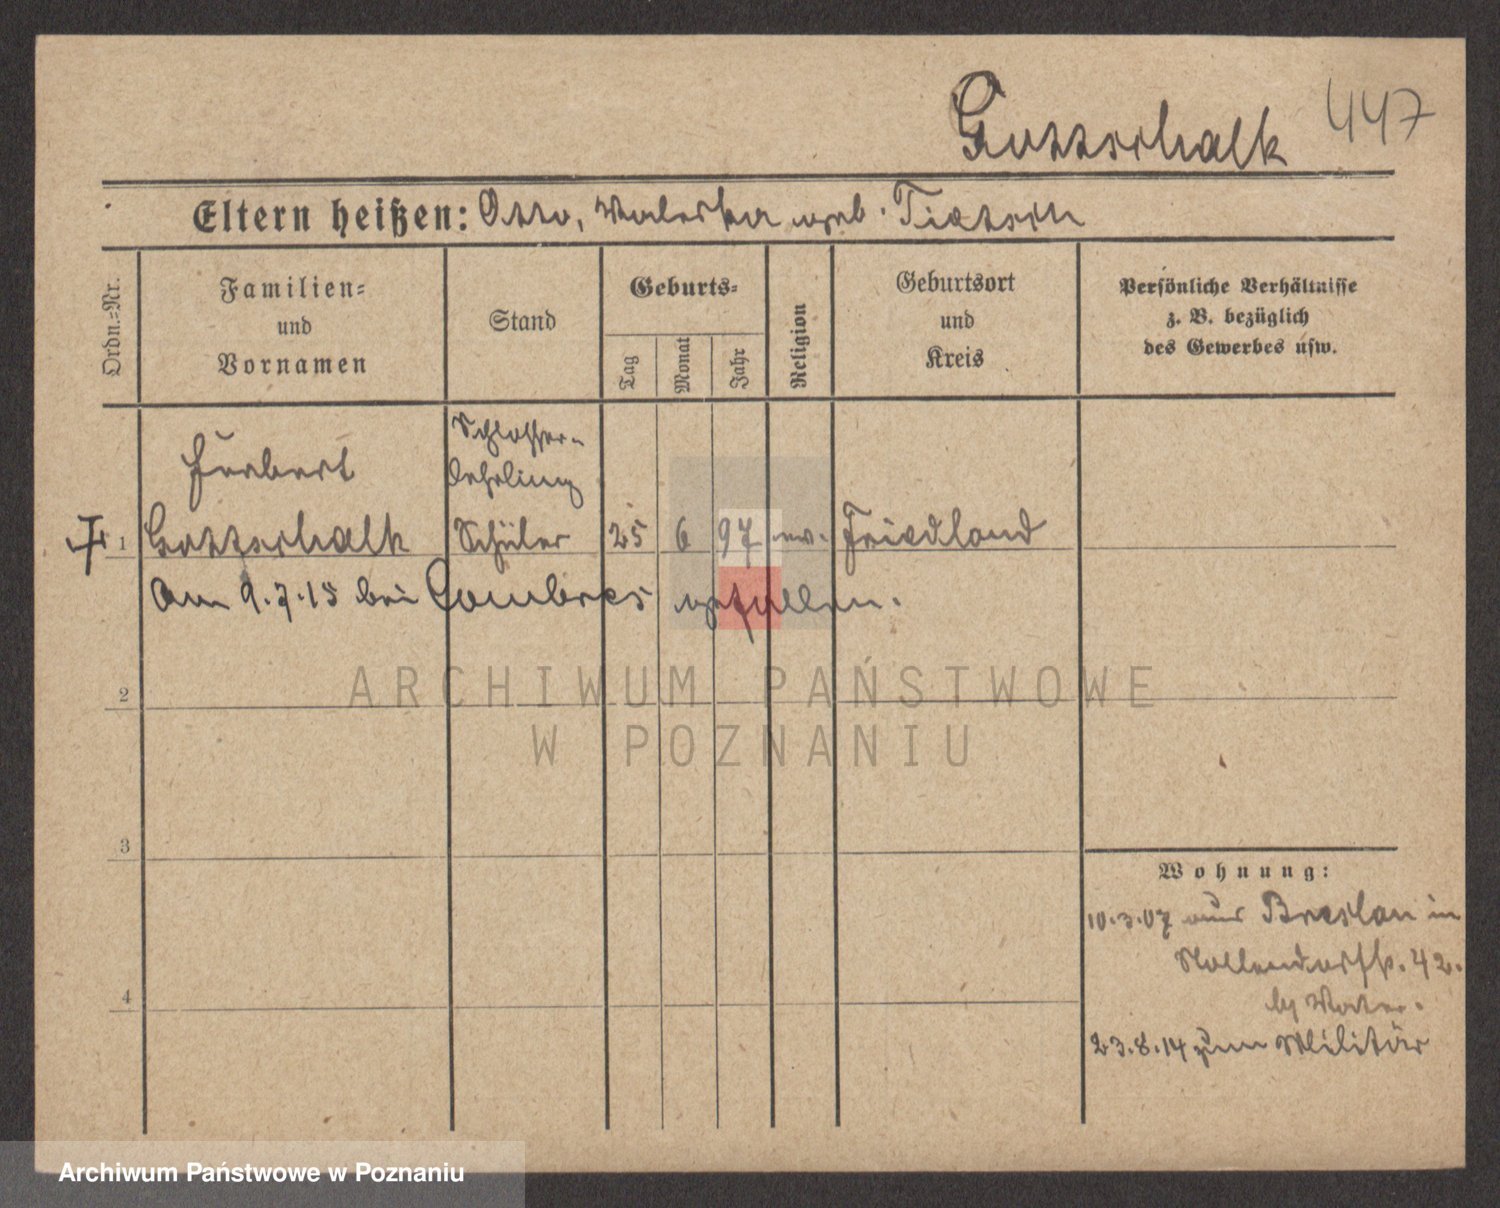 Gottschalk 447
Eltern heißen: Otto, Waleska geb. Tietsch
Ordn.=Nr.
Familien=
und
Vornamen
Stand
Geburts=
Tag
Monat
Jahr
Religion
Geburtsort
und
Kreis
Persönliche Verhältnisse
z. B. bezüglich
des Gewerbes usw.
Schlosser-
lehrling
Herbert
1 Gottschalk Schüler 25 6 97 ev. Friedland
Am 9.7.15 bei Combres gefallen.
2
3
4
Wohnung:
10.3.07 aus Breslau in
Nollendorfstr. 42.
b/ Vater.
23.8.14 zum Militär
ARCHIWUM PAŃSTWOWE
W POZNANIU
Archiwum Państwowe w Poznaniu